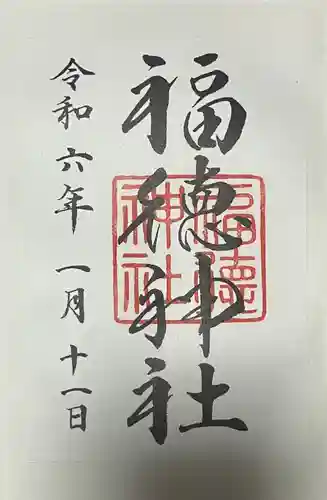 福徳神社
令和六年一月十一日
福德
神社